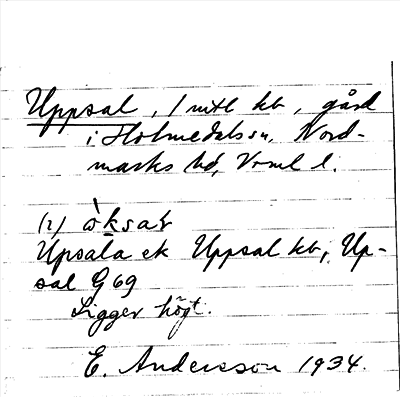 Uppsal, 1 mtl kb, gård
i Holmedals sn, Nord-
marks hd, Vrml l.
(2) òksaɫ
Upsala ek Uppsal kb, Up-
sal G 69
Ligger högt.
E. Andersson 1934.